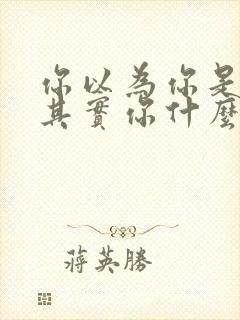 你以為你是
其實你什麼
蔣英勝